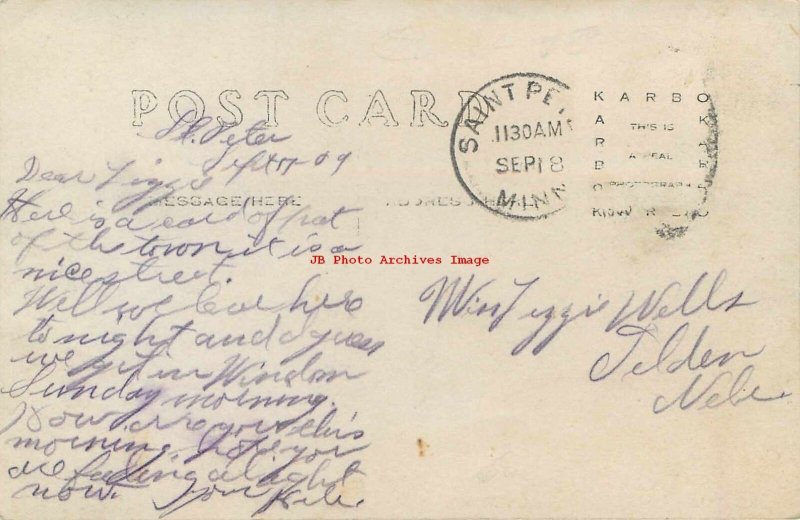 POST CARD
SAINT PE
1130AM
SEP 18
MINN
KARBO
THIS IS
A REAL
PHOTOGRAPH
St. Peter
Sept 09
Dear Lizzie
MESSAGE HERE
ADDRESS H
Here is a card of part
of the town it is a
nice street.
Well we leave here
to night and I guess
we get in Windom
Sunday morning.
How are you this
morning, hope you
are feeling alright
now. Your
JB Photo Archives Image
Miss Lizzie Wells
Tilden
Nebr.